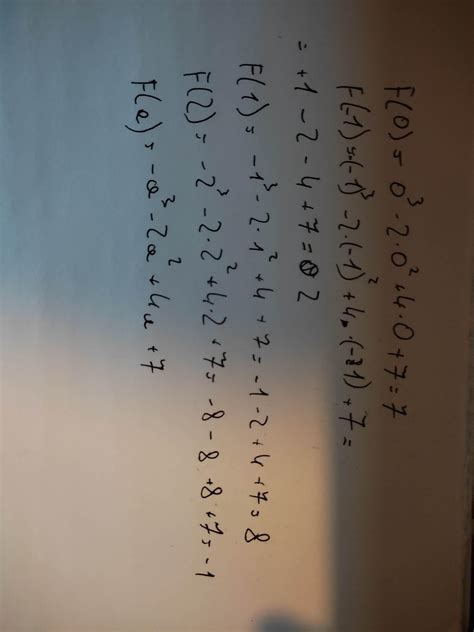 F(0) = 0³ - 2·0² + 4·0 + 7 = 7
F(-1) = -(-1)³ - 2·(-1)² + 4·(-1) + 7 =
= +1 - 2 - 4 + 7 = 2
F(1) = -1³ - 2·1² + 4 + 7 = -1 - 2 + 4 + 7 = 8
F(2) = -2³ - 2·2² + 4·2 + 7 = -8 - 8 + 8 + 7 = -1
F(a) = -a³ - 2a² + 4a + 7